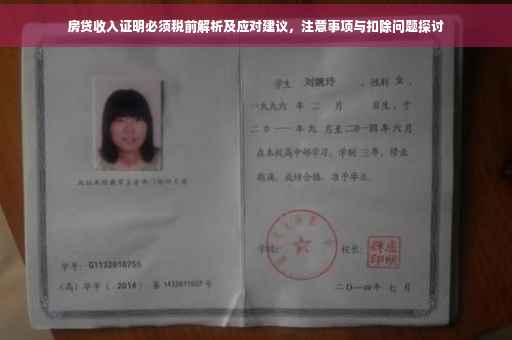 房贷收入证明必须税前解析及应对建议，注意事项与扣除问题探讨
学生 刘婉玲 ，性别 女 ，
一九九六 年 二 月 日生，于
二〇一一年九月至二〇一四年六月
在本校高中部学习，学制 三年，修业
期满，成绩合格，准予毕业。
学校： 校长：
二〇一四年 七 月
学号： G1132010755
（高）毕字（ 2014 ）第 1432011027 号